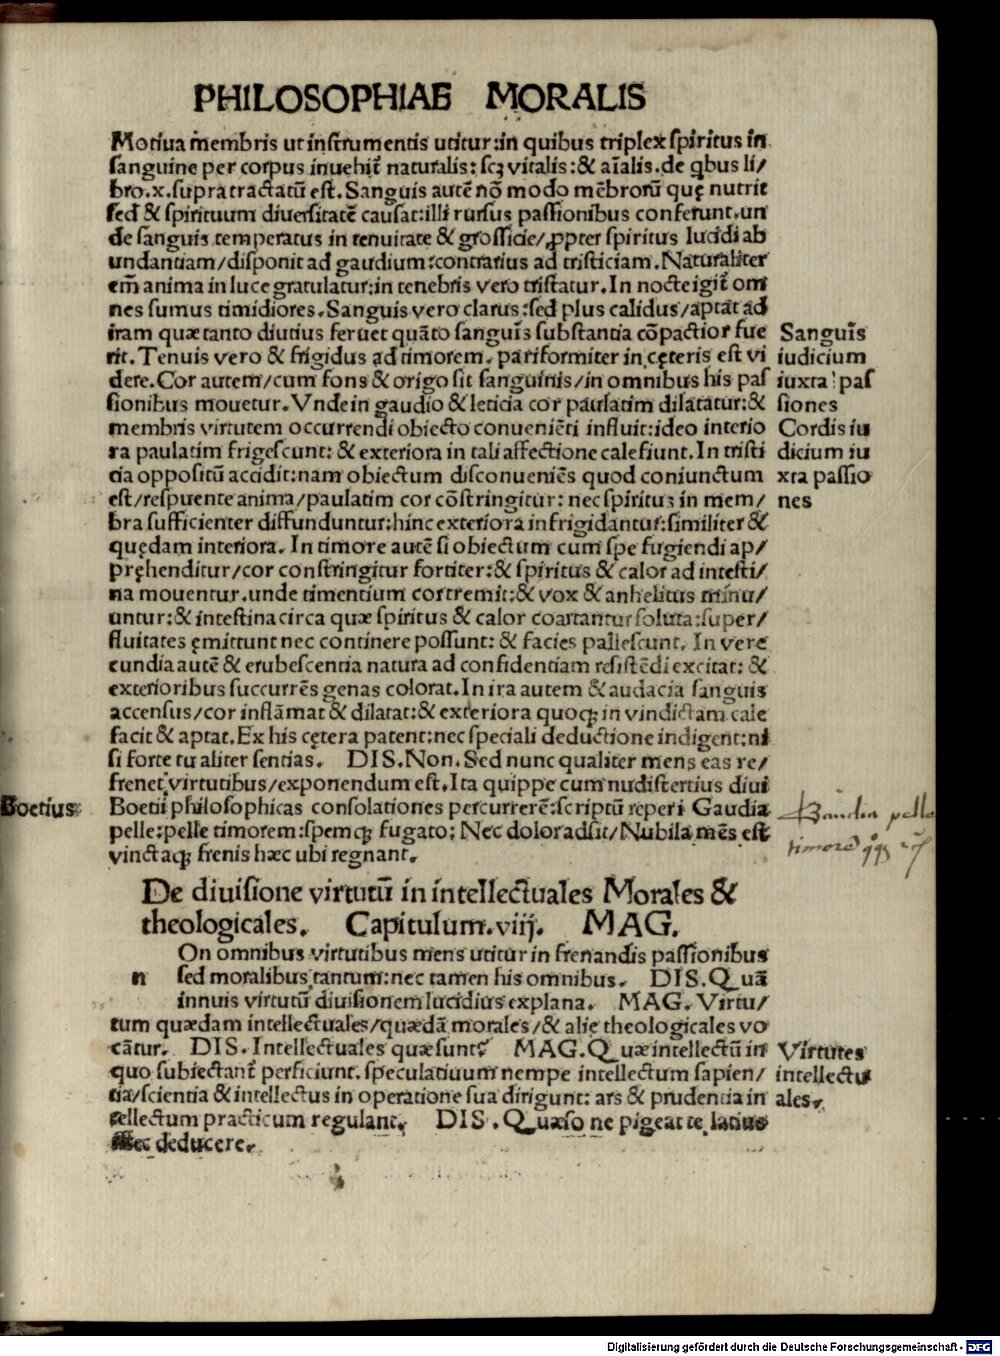 PHILOSOPHIAE MORALIS
Motiua membris ut instrumentis utitur:in quibus triplex spiritus in
sanguine per corpus inuehit᷑ naturalis:scꝫ vitalis:& aīalis.de qbus li/
bro.x.supra tractatū est.Sanguis autē nō modo mēbrorū quę nutrit
sed & spirituum diuersitatē causat:illi rursus passionibus conferunt.un
de sanguis temperatus in tenuitate & grossicie/ꝓpter spiritus lucidi ab
undantiam/disponit ad gaudium:contrarius ad tristiciam.Naturaliter
em̄ anima in luce gratulatur:in tenebris vero tristatur.In nocte igit᷑ om
nes sumus timidiores.Sanguis vero clarus:sed plus calidus/aptat ad
iram quæ tanto diutius feruet quāto sanguis substantia cōpactior fue
rit.Tenuis vero & frigidus ad timorem.pariformiter in cęteris est vi
dere.Cor autem/cum fons & origo sit sanguinis/in omnibus his pas
sionibus mouetur.Vnde in gaudio & leticia cor paulatim dilatatur:&
membris virtutem occurrendi obiecto conueniēti influit:ideo interio
ra paulatim frigescunt: & exteriora in tali affectione calefiunt.In tristi
cia oppositū accidit:nam obiectum disconueniēs quod coniunctum
est/respuente anima/paulatim cor cōstringitur: nec spiritus in mem/
bra sufficienter diffunduntur:hinc exteriora infrigidantur:similiter &
quędam interiora.In timore autē si obiectum cum spe fugiendi ap/
pręhenditur/cor constringitur fortiter:& spiritus & calor ad intesti/
na mouentur.unde timentium cor tremit:& vox & anhelitus minu/
untur:& intestina circa quæ spiritus & calor coartantur soluta:super/
fluitates ęmittunt nec continere possunt: & facies pallescunt. In vere
cundia autē & erubescentia natura ad confidentiam resistēdi excitat: &
exterioribus succurrēs genas colorat.In ira autem & audacia sanguis
accensus/cor inflāmat & dilatat:& exteriora quoqꝫ in vindictam cale
facit & aptat.Ex his cętera patent:nec speciali deductione indigent:ni
si forte tu aliter sentias. DIS.Non.Sed nunc qualiter mens eas re/
frenet virtutibus/exponendum est.Ita quippe cum nudistertius diui
Boetius Boetii philosophicas consolationes percurrerē:scriptū reperi Gaudia
pelle:pelle timorem:spemqꝫ fugato: Nec dolor adsit/Nubila mēs est
vinctaqꝫ frenis hæc ubi regnant.
Sanguis
iudicium
iuxta pas
siones
Cordis iu
dicium iu
xta passio
nes
Gaudia pelle
timorē
De diuisione virtutū in intellectuales Morales &
theologicales. Capitulum.viij. MAG.
n On omnibus virtutibus mens utitur in frenandis passionibus
sed moralibus tantum:nec tamen his omnibus. DIS.Quā
innuis virtutū diuisionem lucidius explana. MAG. Virtu/
tum quædam intellectuales/quædā morales/& alię theologicales vo
cātur. DIS.Intellectuales quæ sunt? MAG.Quæ intellectū in
quo subiectant᷑ perficiunt.speculatiuum nempe intellectum sapien/
tia/scientia & intellectus in operatione sua dirigunt: ars & prudentia in
tellectum practicum regulant. DIS.Quæso ne pigeat te latius
hæc deducere.
Virtutes
intellectu
ales.
Digitalisierung gefördert durch die Deutsche Forschungsgemeinschaft - DFG